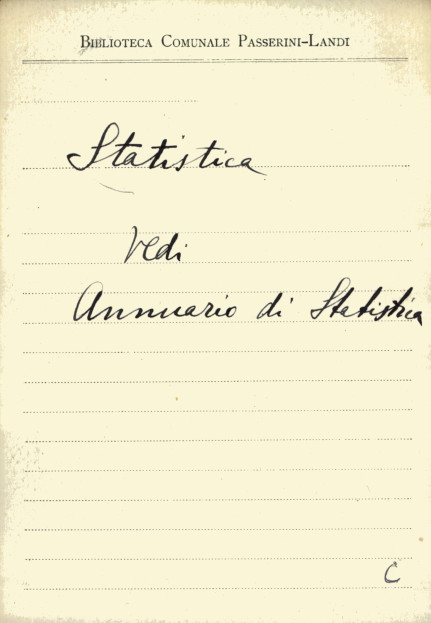 Biblioteca Comunale Passerini-Landi
Statistica
Vedi
Annuario di Statistica
C